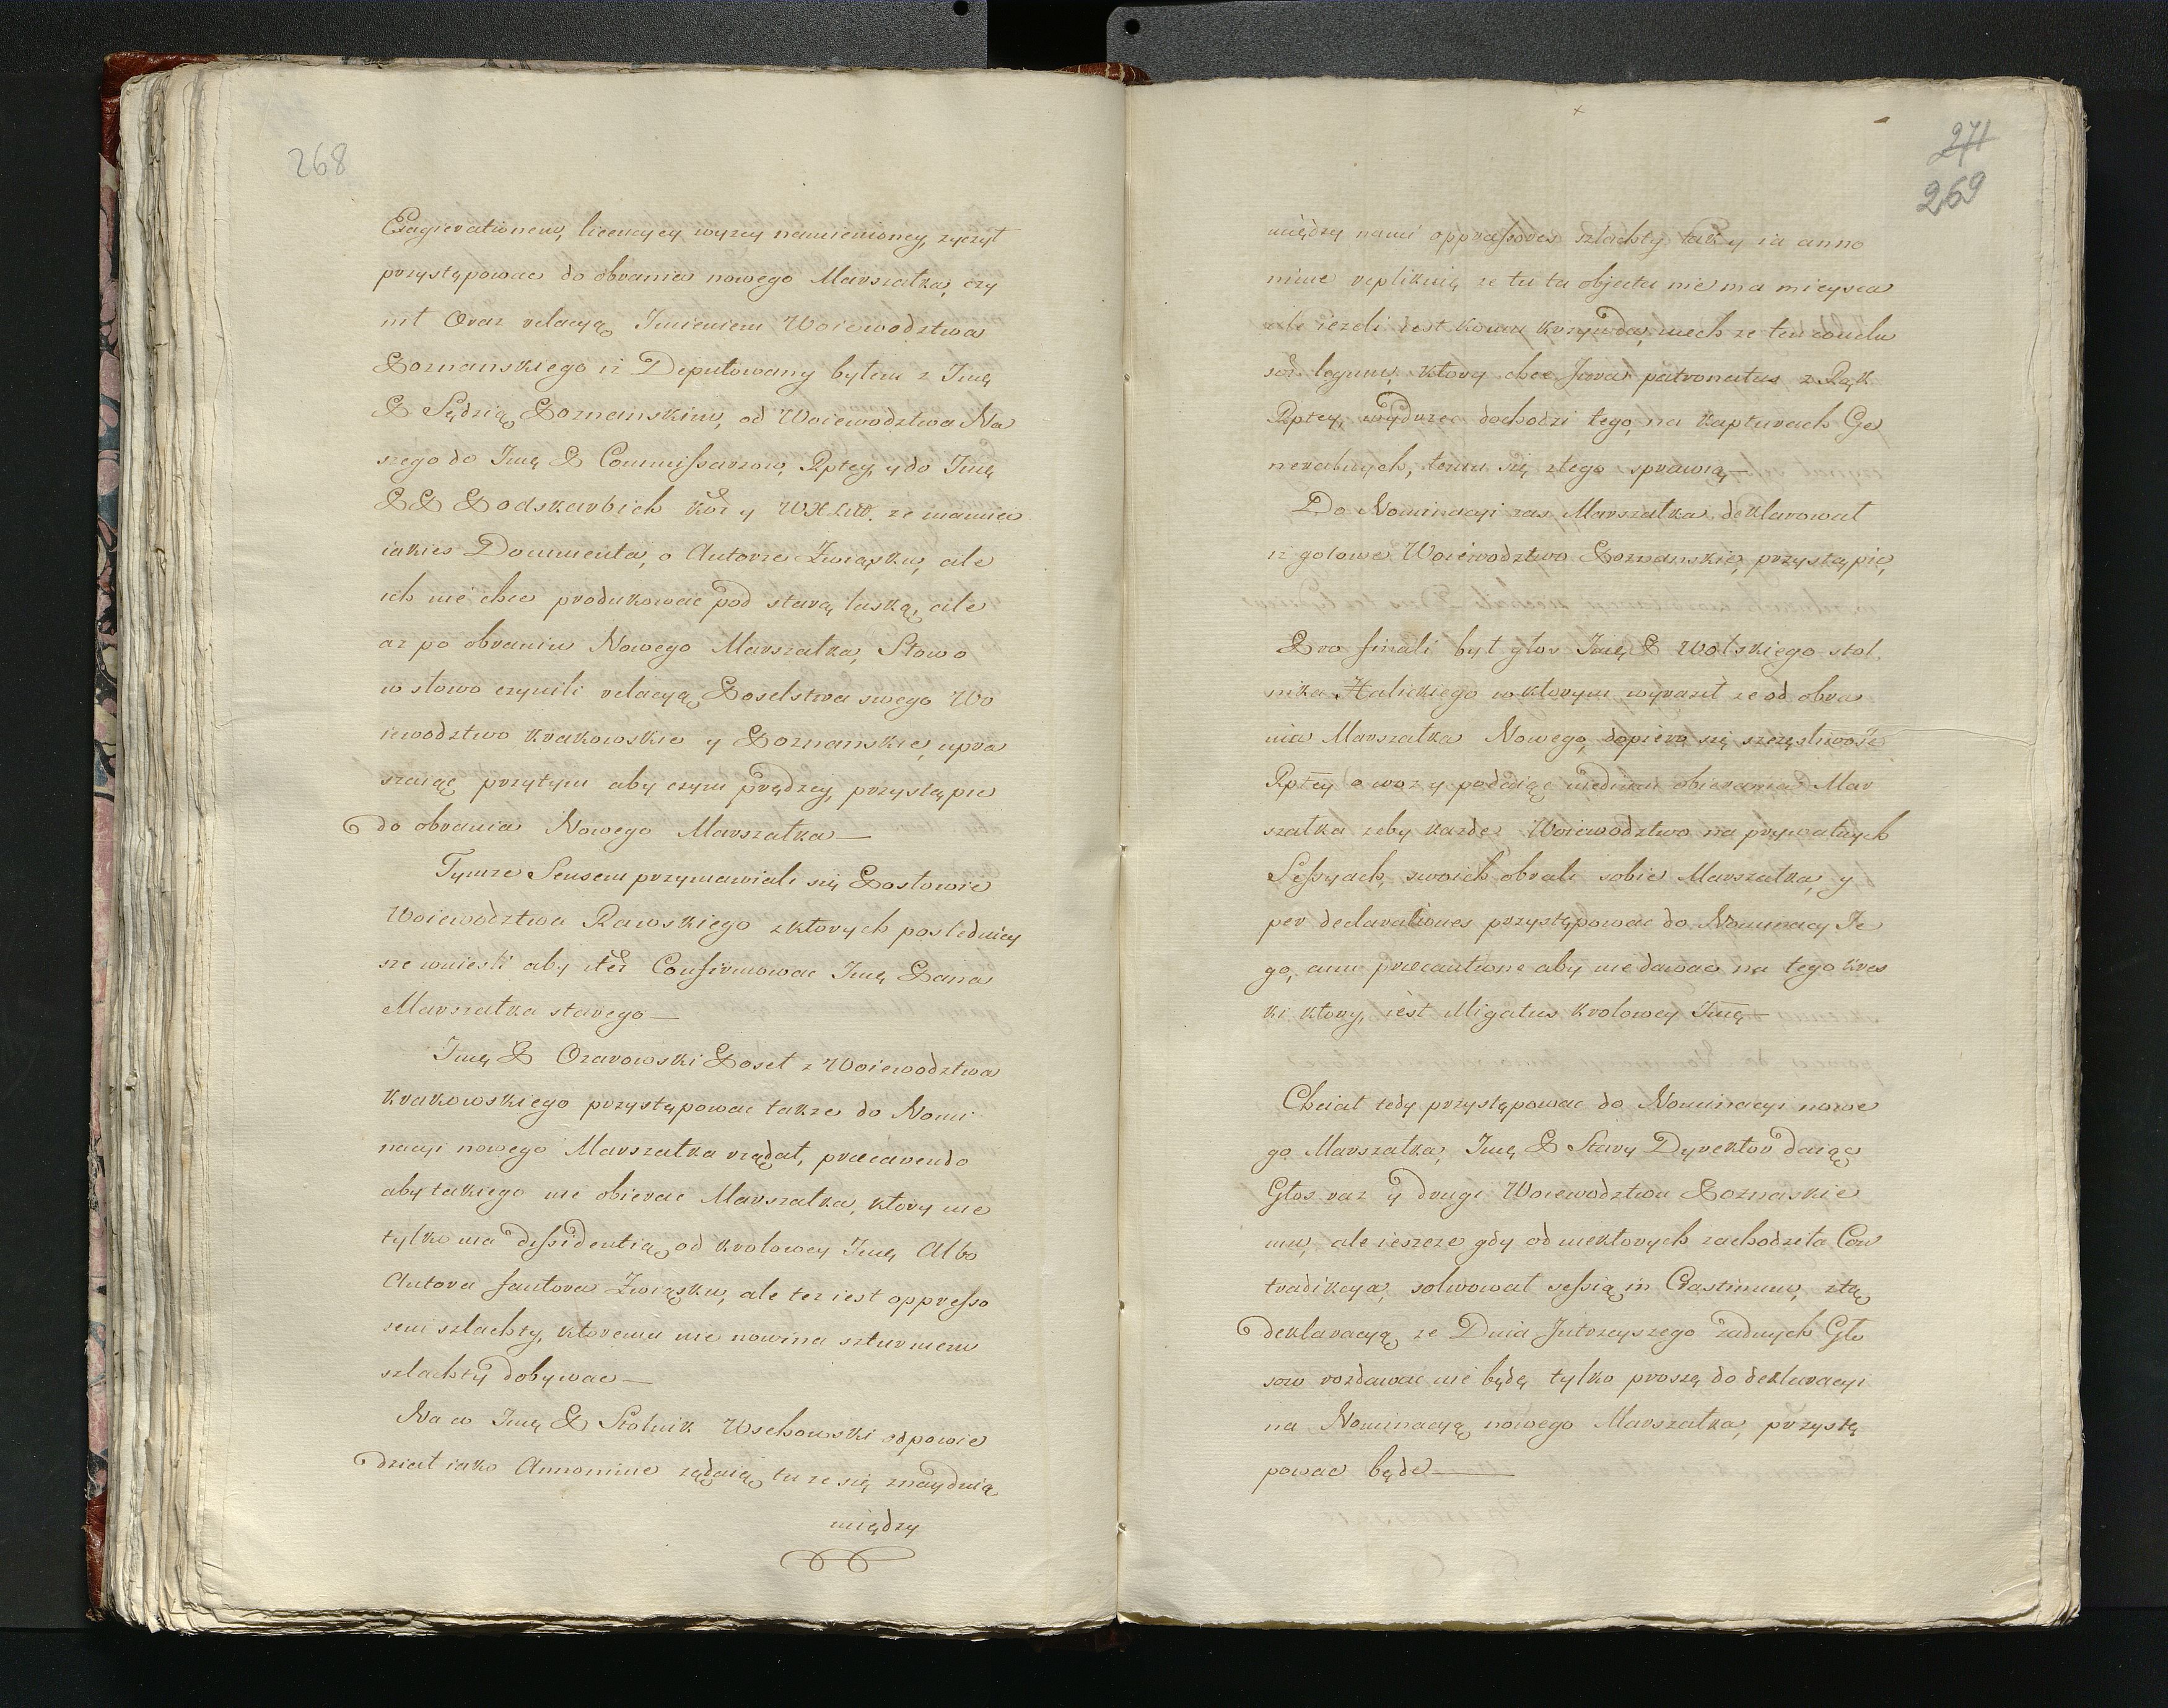 268
Exagierationem, licencyey wyzey namienioney, zyczył
przystępowac do obrania nowego Marszałka, czy
nił Oraz relacyą Imieniem Woiewodztwa
Poznanskiego iz Deputowany byłem z Imę
P Sędzią Poznanskim, od Woiewodztwa Na
szego do Imę P Commissarzow, Rptey, y do Imę
PP Podskarbich Kor y WXLitt. ze mamiei
iakies Documenta, o Autorze Zwiąsku, ale
ich nie chce produkowac pod starą laską, ale
az po obraniu Nowego Marszałka, Słowo
w słowo czynili relacyą Poselstwa swego Wo
iewodztwo Krakowskie y Poznanskie, upra
szaiąc przytym aby czym prędzey, przystąpic
do obrania Nowego Marszałka—
Tymze Sensem przymawiali się Posłowie
Woiewodztwa Rawskiego z ktorych posledniey
sze wniesli aby też Confirmowac Imę Pana
Marszałka starego—
Imę P Ozarowski Poseł z Woiewodztwa
Krakowskiego przystępowac takze do Nomi
nacyi nowego Marszałka rządał, praecavendo
aby takiego nie obierac Marszałka, ktory nie
tylko ma dissidentią od krolowey Imę Albo
Autora fautora Zwiąsku, ale tez iest oppresso
rem szlachty, ktoremu nie nowina szturmem
szlachty dobywac—
Na co Imę P Stolnik Wschowski odpowie
dział iako Annomine ządaią tu ze się znayduią
między
271
269
między nami oppressores szlachty tak y ia anno
mine replikuię ze tu ta objecta nie ma mieysca
ale iezeli iest komu krzywda, niech ze ten condu
sor legum, ktory chce Jura patronatus z Rąk
Rptey, wydrzec dochodzi tego, na kapturach Ge
neralnych, temu się z tego sprawią—
Do Nominacyi zas Marszałka deklarował
iz gotowe Woiewodztwo Poznanskie, przystąpic,
Pro finali był głos Imę P Wolskiego stol
nika Halickiego w ktorym wyraził ze od obra
nia Marszałka Nowego, dopiero się szczęsliwosc
Rptey otworzy podaiąc medium obierania Mar
szałka zeby kazde Woiewodztwo na prywatnych
Sessyach, swoich obrali sobie Marszałka, y
per declarationes przystępowac do Nominacy Te
go, cum praecautione aby nie dawac na tego kres
ki ktory, iest Migatus krolowey Imę—
Chciał tedy przystępowac do Nominacyi nowe
go Marszałka, Imę P Stary Dyrektor daiąc
Głos raz y drugi Woiewodztwu Poznaskie
mu, ale ieszcze gdy od niektorych zachodziła Con
tradikcya, solwował sessią in Crastinum, z tą
deklaracyą ze Dnia Jutrzeyszego zadnych Gło
sow rozdawac nie będę tylko proszę do deklaracyi
na Nominacyą nowego Marszałka, przystę
powac będę—